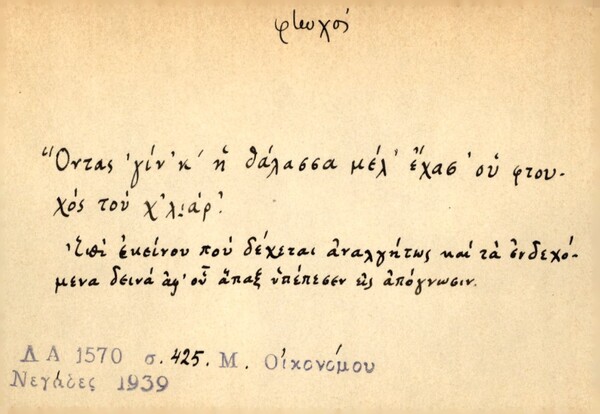 φτωχός
"Όντας 'γίν'κ' ἡ θάλασσα μέλ' ἔχασ' οὑ φτου-
χός τού χ'λιάρ'.
Ἐπὶ ἐκείνου πού δέχεται ἀναλγήτως καί τὰ ἐνδεχό-
μενα δεινά ἀφ' οὗ ἅπαξ ὑπέπεσεν εἰς ἀπόγνωσιν.
ΛΑ 1570 σ. 425. Μ. Οἰκονόμου
Νεγάδες 1939